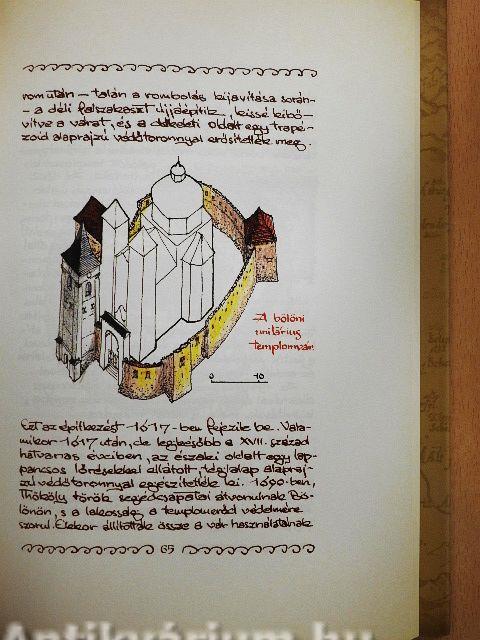 rom után – talán a rombolás kijavítása során–
– a déli falszakaszt újjáépítik, kissé kibő-
vítve a várat, és a délkeleti oldalt egy trape-
zoid alaprajzú védőtoronnyal erősítették meg.
A bölöni
unitárius
templomvár.
0 10
Ezt az építkezést 1617-ben fejezik be. Vala-
mikor 1617 után, de legkésőbb a XVII. század
hatvanas éveiben, az északi oldalt egy lap-
pancsos lőrésekkel ellátott, téglalap alapraj-
zú védőtoronnyal egészítették ki. 1690-ben,
Thököly török segédcsapatai átvonulnak Bö-
lönön, s a lakosság a templomerőd védelmére
szorul. Ekkor állították össze a vár használatának
65
Antikvárium.hu